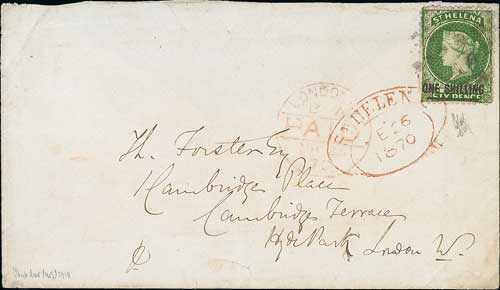 ST HELENA
ONE SHILLING
LONDON
PA
ST HELENA
FE 26
1870
Th. Forster Esq
Cambridge Place
Cambridge Terrace
Hyde Park London W.